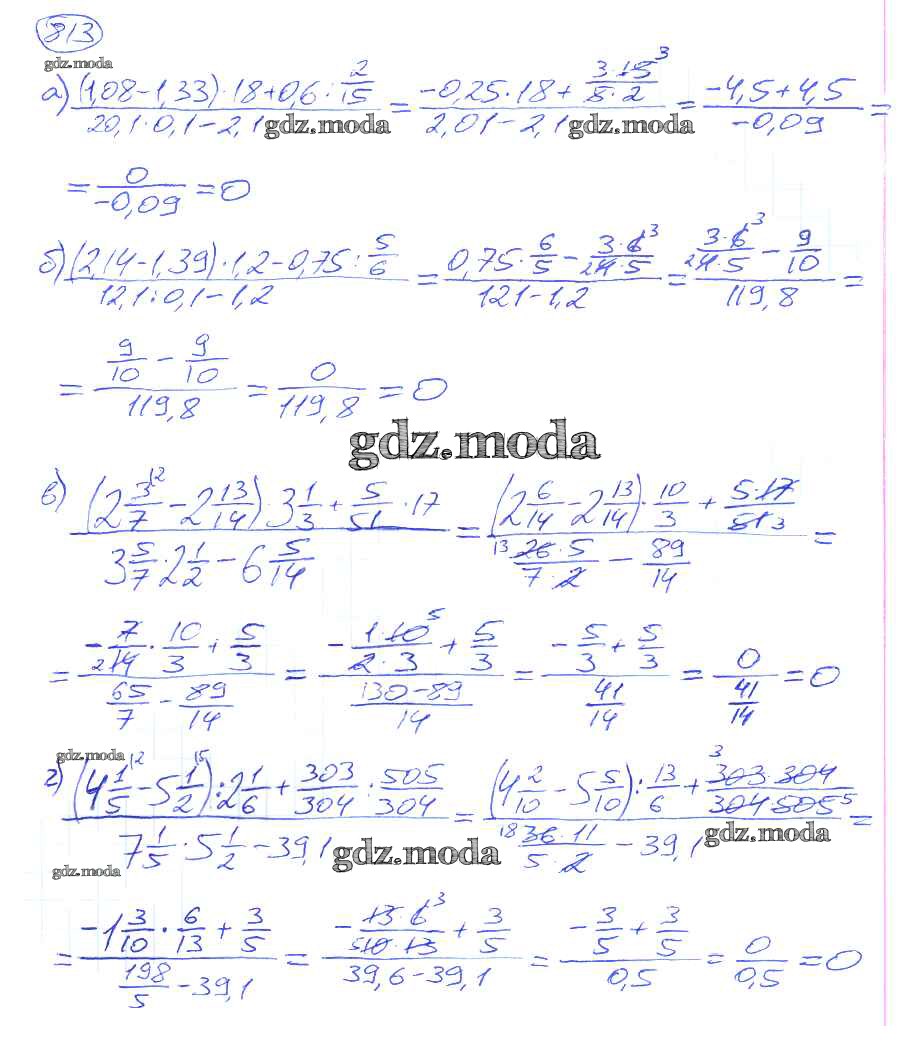 813
gdz.moda
а) ((1,08-1,33)·18+0,6:2/15)/(20,1·0,1-2,1) = (-0,25·18+(3·15)/(5·2))/(2,01-2,1) = (-4,5+4,5)/(-0,09) =
gdz.moda gdz.moda
= 0/(-0,09) = 0
б) ((2,14-1,39)·1,2-0,75:5/6)/(12,1:0,1-1,2) = (0,75·6/5-(3·6)/(4·5))/(121-1,2) = ((3·6)/(4·5)-9/10)/(119,8) =
= (9/10-9/10)/(119,8) = 0/(119,8) = 0
gdz.moda
в) ((2 3/7-2 13/14)·3 1/3+5/51·17)/(3 5/7·2 1/2-6 5/14) = ((2 6/14-2 13/14)·10/3+(5·17)/51)/((26·5)/(7·2)-89/14) =
= (-7/14·10/3+5/3)/(65/7-89/14) = (-(1·10)/(2·3)+5/3)/((130-89)/14) = (-5/3+5/3)/(41/14) = 0/(41/14) = 0
gdz.moda
г) ((4 1/5-5 1/2):2 1/6+303/304:505/304)/(7 1/5·5 1/2-39,1) = ((4 2/10-5 5/10):13/6+(303·304)/(304·505))/((36·11)/(5·2)-39,1) =
gdz.moda gdz.moda
gdz.moda
= (-1 3/10·6/13+3/5)/(198/5-39,1) = (-(13·6)/(10·13)+3/5)/(39,6-39,1) = (-3/5+3/5)/(0,5) = 0/(0,5) = 0